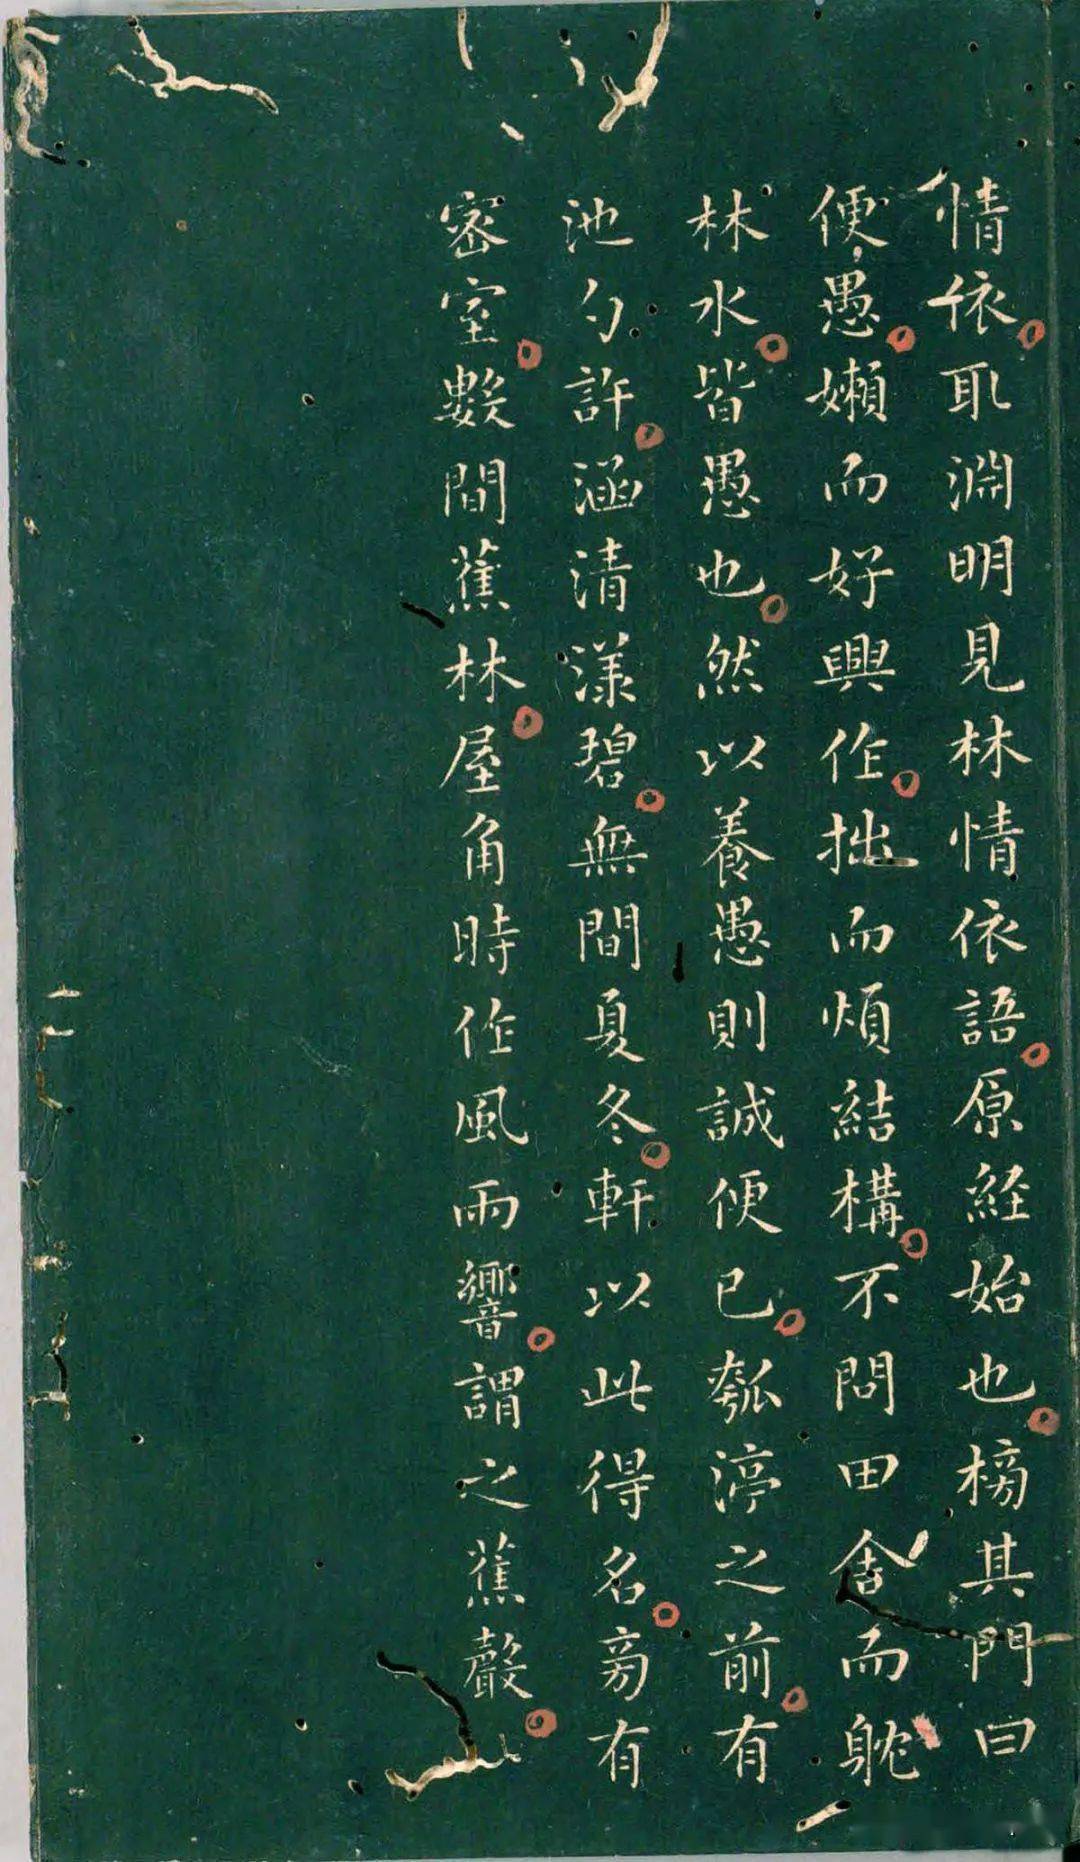 情依取淵明見林情依語原経始也榜其門曰
便愚嬾而好興作拙而煩結構不問田舍而躭
林水皆愚也然以養愚則誠便已瓠渟之前有
池勺許涵清漾碧無間夏冬軒以此得名旁有
密室數間蕉林屋角時作風雨響謂之蕉聲